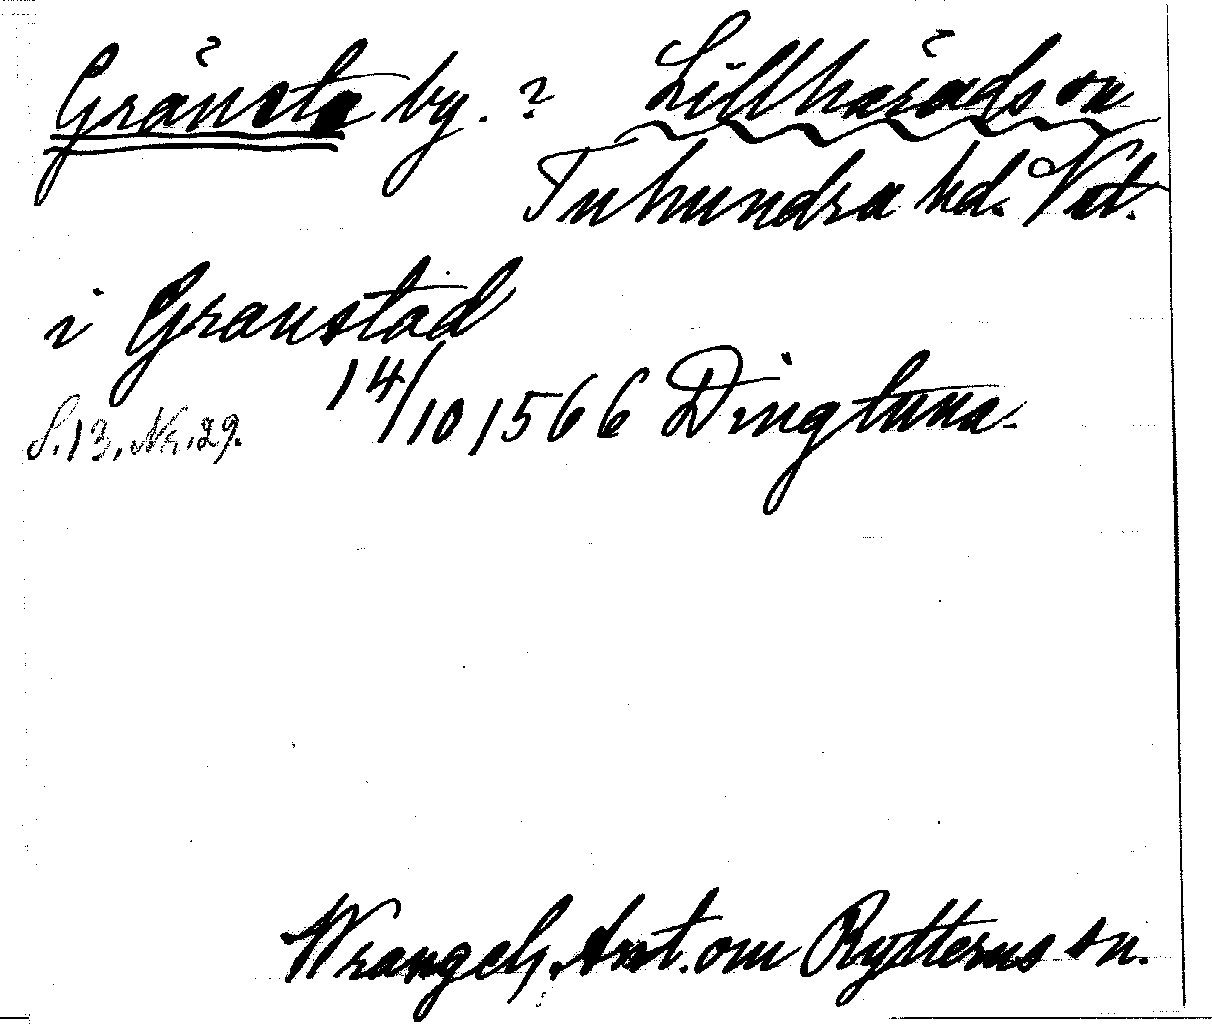 Gränsta by. ? Lillhärads sn
Tuhundra hd. Vstl.
i Granstad
14/10 1566 Dingtuna.
S. 13, Nr. 29.
Wrangel, Ant. om Rytterns sn.